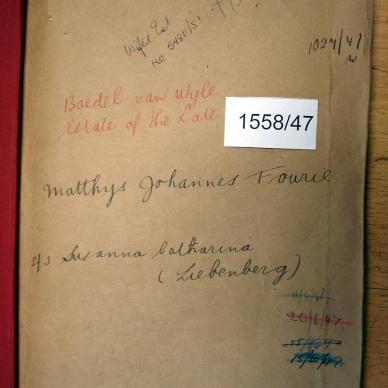 Wife's Est
No 5480/51
1024/47
Boedel van wyle
Estate of the Late
1558/47
Matthys Johannes Fourie
s/s Susanna Catharina
(Liebenberg)
20/6/47